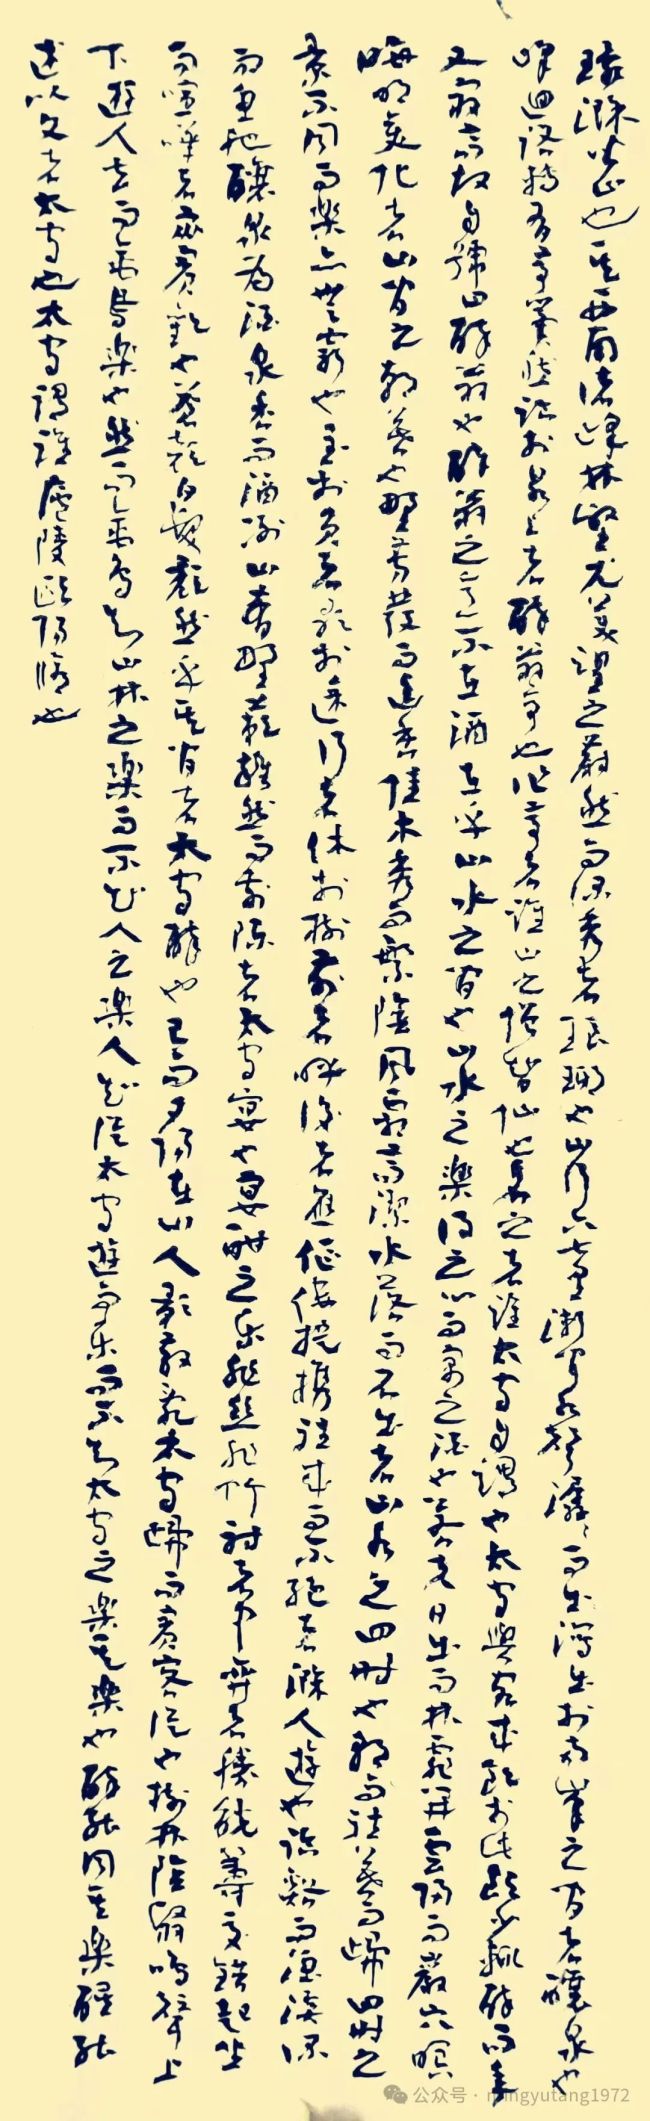 環滁皆山也其西南諸峰林壑尤美望之蔚然而深秀者琅琊也山行六七里漸聞水聲潺〻而出瀉出於兩峯之間者釀泉也
峰迴路轉有亭翼然臨於泉上者醉翁亭也作亭者誰山之僧智仙也名之者誰太守自謂也太守與客來飲於此飲少輒醉而年
又最高故自號曰醉翁也醉翁之意不在酒在乎山水之間也山水之樂得之心而寓之酒也若夫日出而林霏開雲歸而巖穴暝
晦明變化者山間之朝暮也野芳發而幽香佳木秀而繁陰風霜高潔水落而石出者山間之四時也朝而往暮而歸四時之
景不同而樂亦無窮也至於負者歌於途行者休於樹前者呼後者應傴僂提攜往來而不絕者滁人遊也臨谿而漁溪深
而魚肥釀泉為酒泉香而酒冽山肴野蔌雜然而前陳者太守宴也宴酣之樂非絲非竹射者中弈者勝觥籌交錯起坐
而喧嘩者眾賓歡也蒼顏白髮頹然乎其間者太守醉也已而夕陽在山人影散亂太守歸而賓客從也樹林陰翳鳴聲上
下遊人去而禽鳥樂也然而禽鳥知山林之樂而不知人之樂人知從太守遊而樂而不知太守之樂其樂也醉能同其樂醒能
述以文者太守也太守謂誰廬陵歐陽脩也
公众号·mingyutang1972